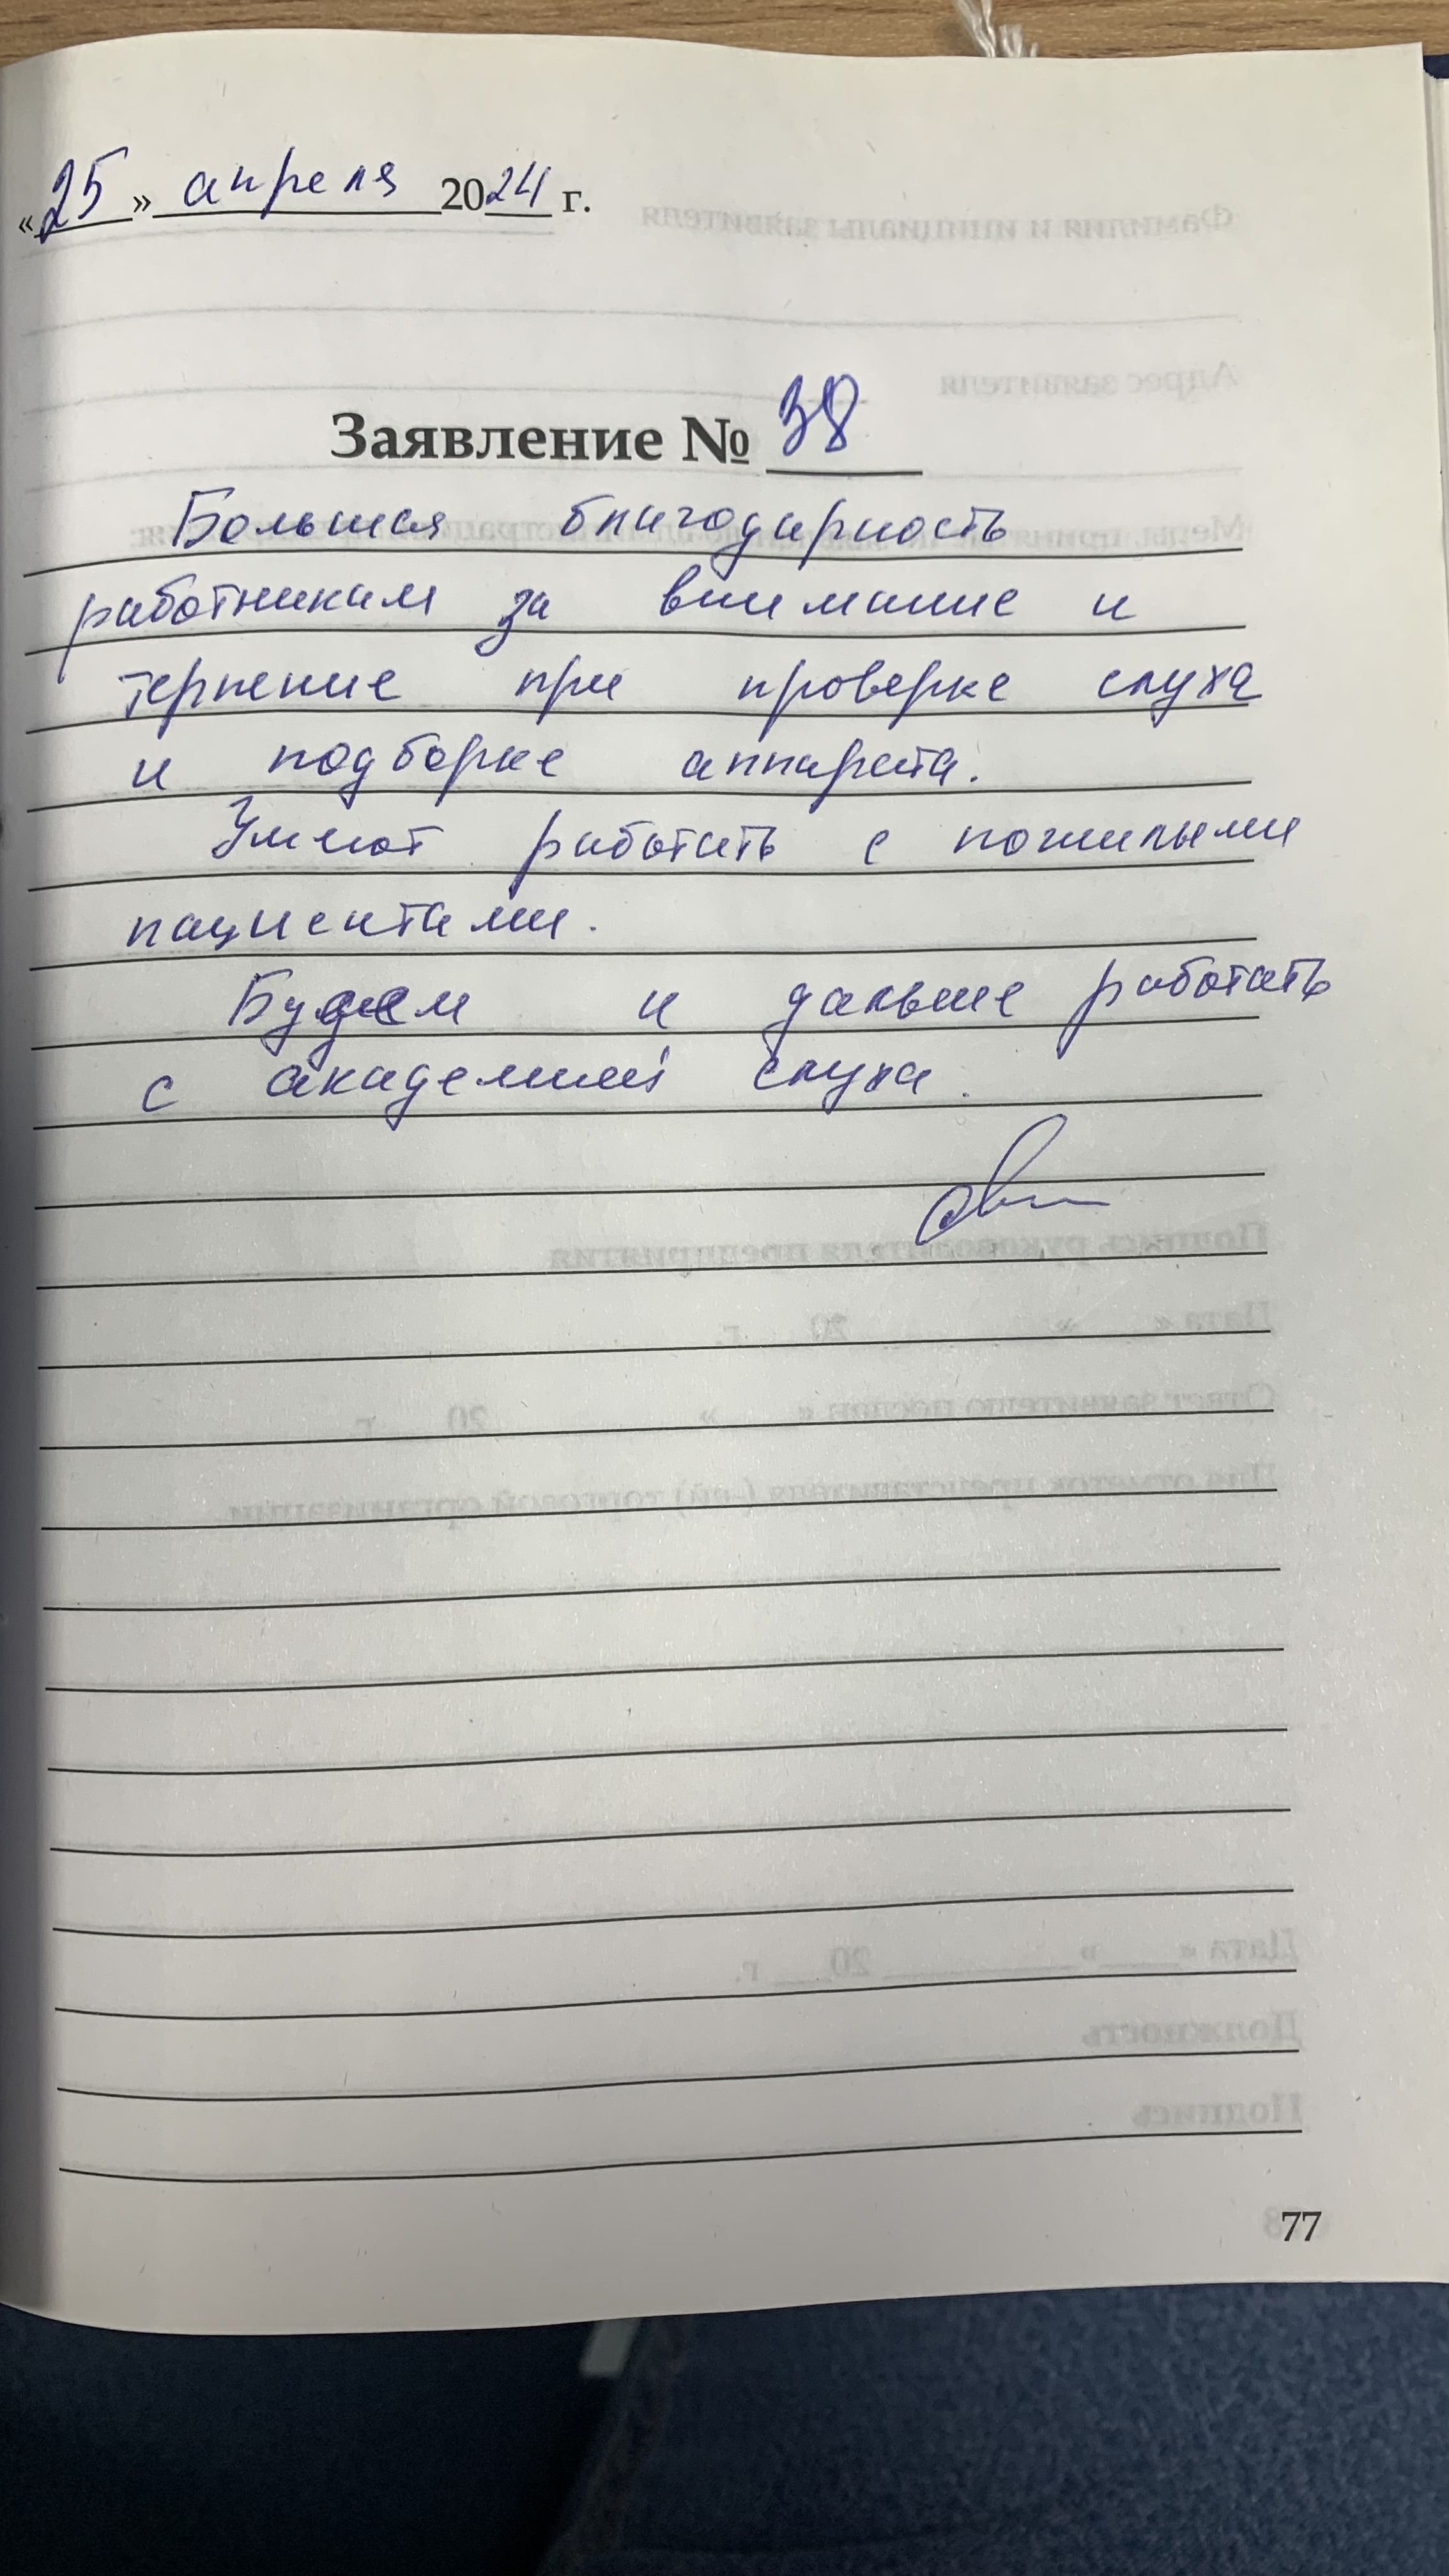 «25» апреля 2024 г.
Заявление № 38
Большая благодарность
работникам за внимание и
терпение при проверке слуха
и подборке аппарата.
Умеют работать с пожилыми
пациентами.
Будем и дальше работать
с академией слуха.
77